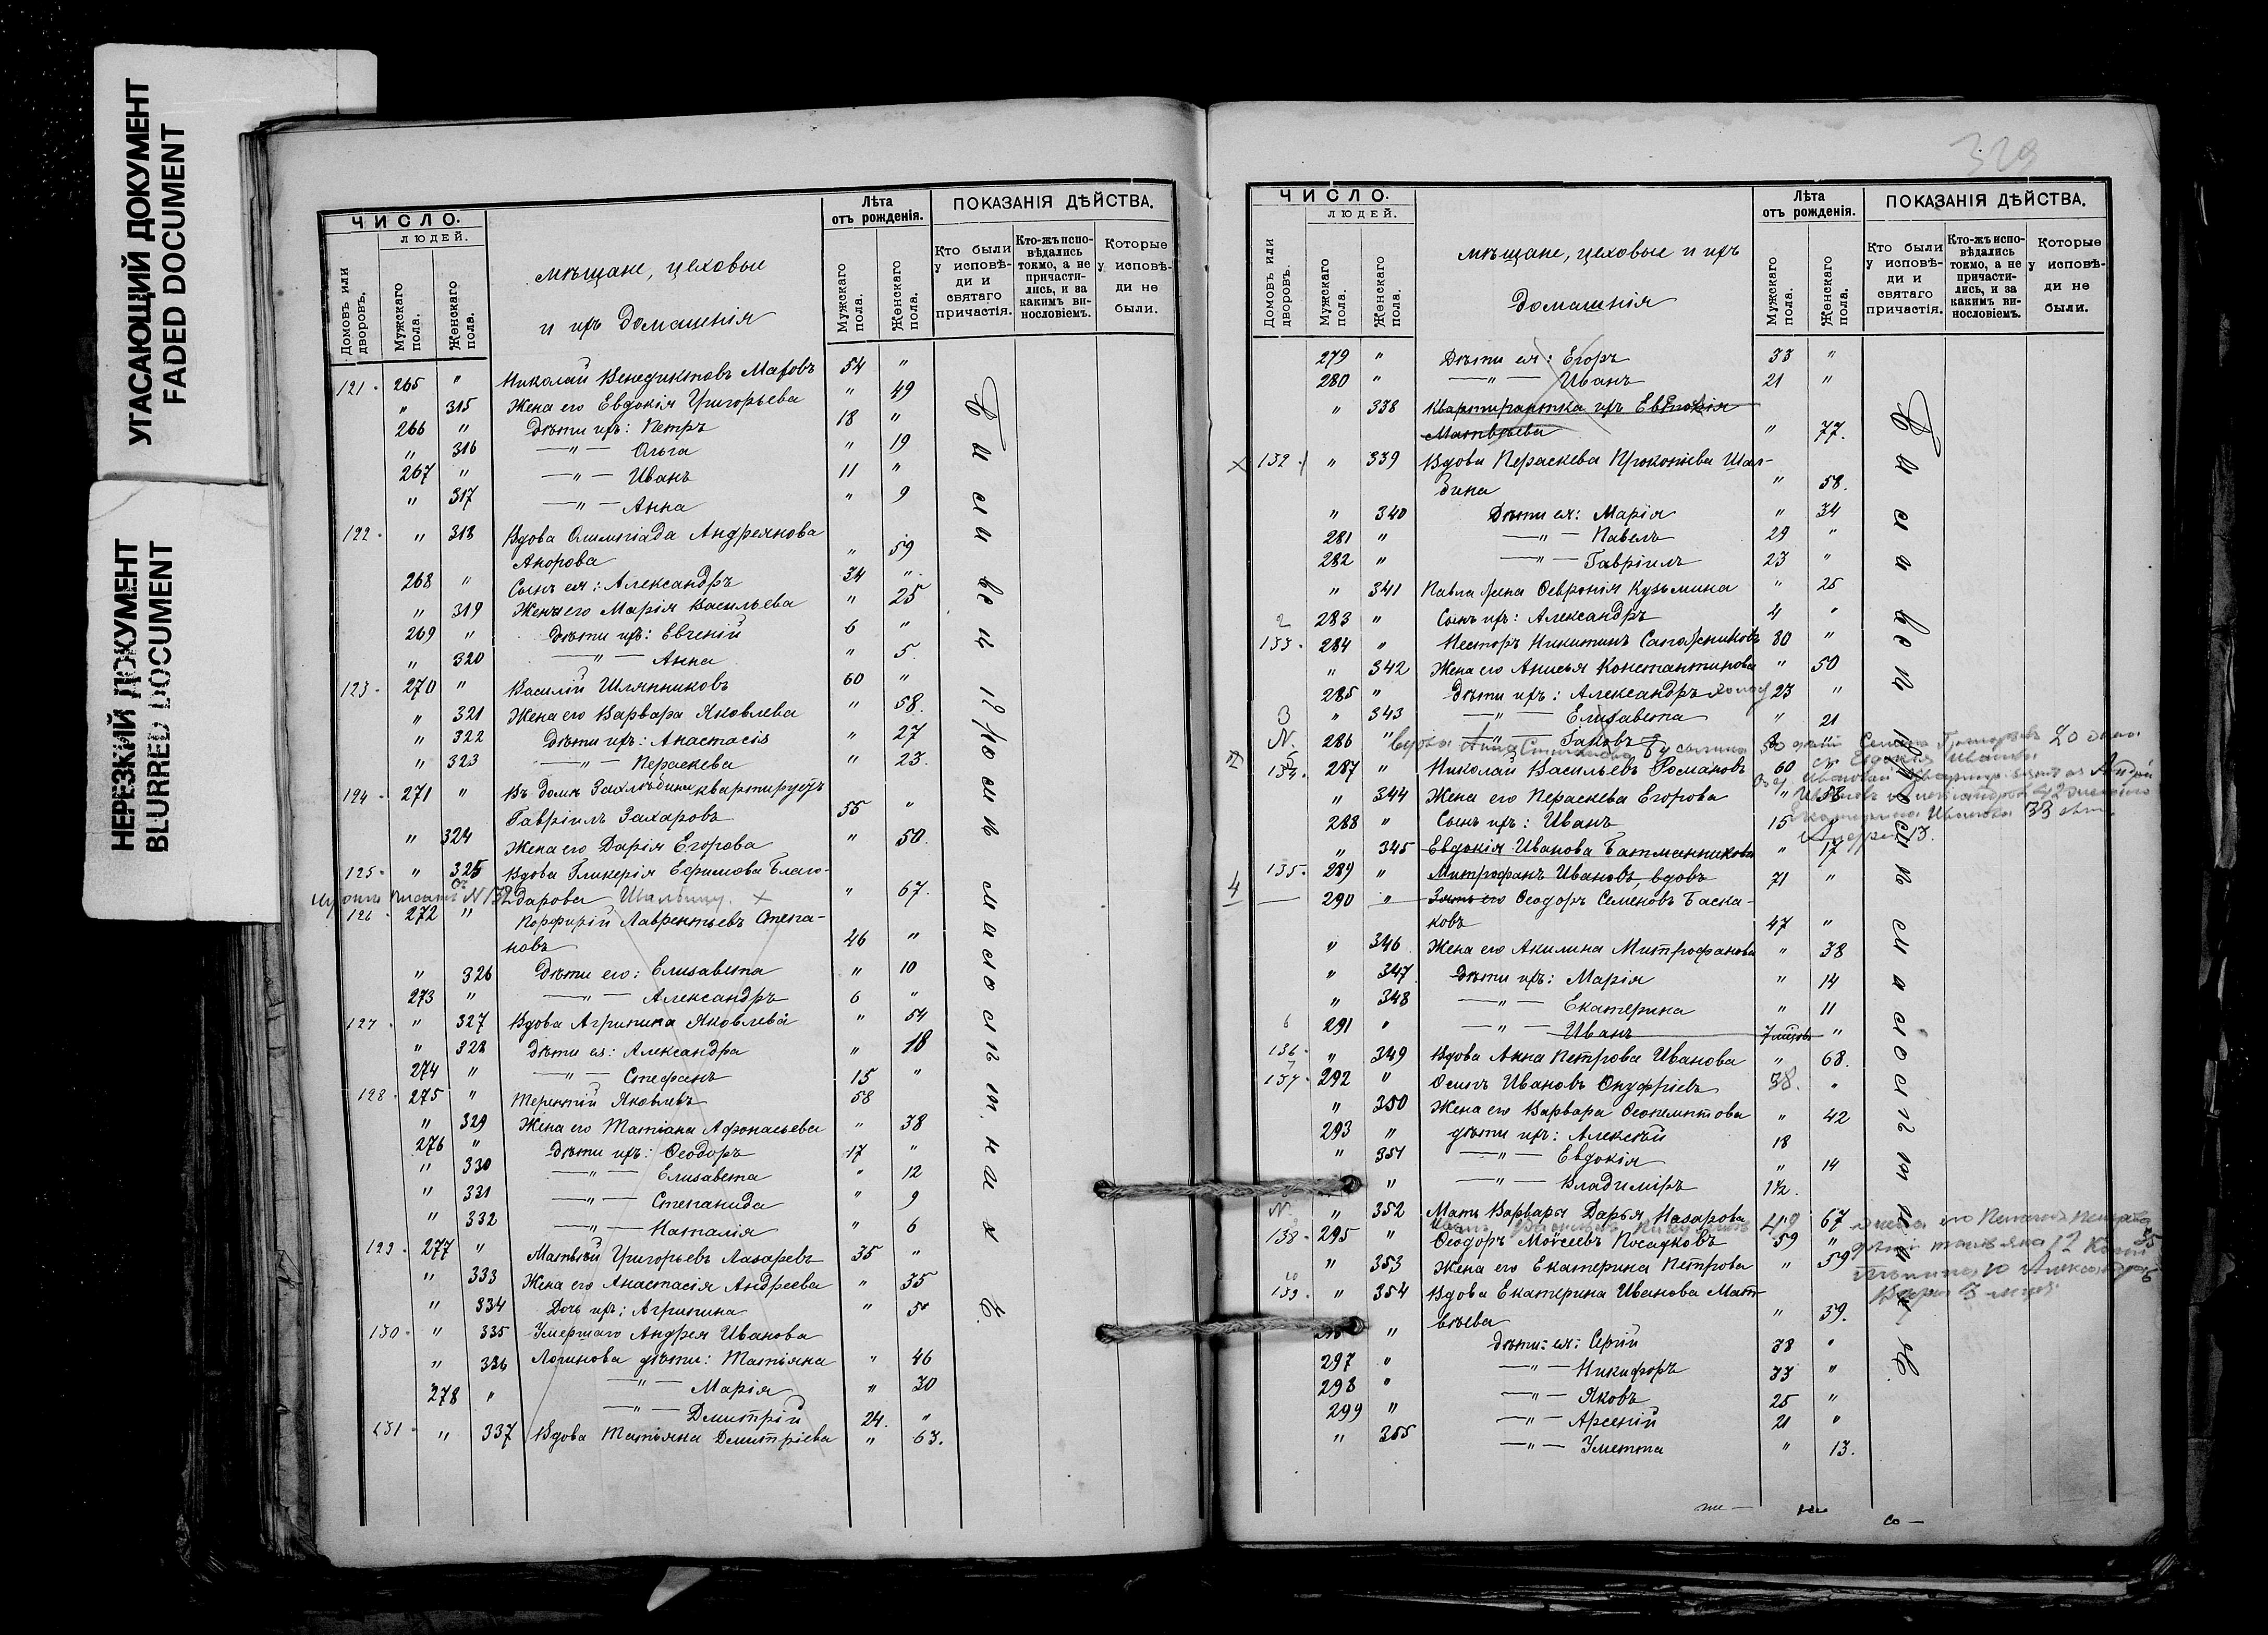 УГАСАЮЩИЙ ДОКУМЕНТ
FADED DOCUMENT
НЕРЕЗКИЙ ДОКУМЕНТ
BLURRED DOCUMENT
ЧИСЛО.
ЛЮДЕЙ.
Домовъ или дворовъ.
Мужскаго пола.
Женскаго пола.
мѣщане, цеховые
и ихъ домашнія
Лѣта
отъ рожденія.
Мужскаго пола.
Женскаго пола.
ПОКАЗАНІЯ ДѢЙСТВА.
Кто были у исповѣди и святаго причастія.
Кто-жъ исповѣдались токмо, а не причастились, и за какимъ винословіемъ.
Которые у исповѣди не были.
121. 265 " Николай Венедиктовъ Маровъ 54 "
" 315 Жена его Евдокія Григорьева " 49
266 " Дѣти ихъ: Петръ 18 "
" 316 —"— Ольга " 19
267 " —"— Иванъ 11 "
" 317 —"— Анна " 9
122. " 318 Вдова Олимпіада Андреянова
Анорова " 59
268 " Сынъ ея: Александръ 34 "
" 319 Жена его Марія Васильева " 25
269 " Дѣти ихъ: Евгеній 6 "
" 320 —"— Анна " 5.
123. 270 " Василій Шляпниковъ 60 "
" 321 Жена его Варвара Яковлева " 58.
" 322 Дѣти ихъ: Анастасія " 27
" 323 —"— Пераскева " 23.
124. 271 " Въ домѣ квартируетъ
Гавріилъ Захаровъ 55 "
" 324 Жена его Дарія Егорова " 50.
125. " 325 Вдова Гликерія Ефимова Благо-
дарова " 67.
126. 272 " Порфирій Лаврентьевъ Степа-
новъ 46 "
" 326 Дѣти его: Елисавета " 10
273 " —"— Александръ 6 "
127. " 327 Вдова Агрипина Яковлева " 54
" 328 Дѣти ея: Александра " 18
274 " —"— Стефанъ 15 "
128. 275 " Терентій Яковлевъ 58
" 329 Жена его Татіана Афонасьева " 38
276 " Дѣти ихъ: Ѳеодоръ 17 "
" 330 —"— Елисавета " 12
" 331 —"— Степанида " 9
" 332 —"— Наталія " 6
129. 277 " Матвѣй Григорьевъ Лазаревъ 35 "
" 333 Жена его Анастасія Андреева " 35
" 334 Дочь ихъ: Агрипина " 5
130. " 335 Умершаго Андрея Иванова
" 336 Логинова дѣти: Татіяна " 46
278 " —"— Марія " 30
—"— Дмитрій 24. "
131. " 337 Вдова Татьяна Дмитріева " 63.
329
ЧИСЛО.
ЛЮДЕЙ.
Домовъ или дворовъ.
Мужскаго пола.
Женскаго пола.
мѣщане, цеховые и ихъ
домашнія
Лѣта
отъ рожденія.
Мужскаго пола.
Женскаго пола.
ПОКАЗАНІЯ ДѢЙСТВА.
Кто были у исповѣди и святаго причастія.
Кто-жъ исповѣдались токмо, а не причастились, и за какимъ винословіемъ.
Которые у исповѣди не были.
279 " Дѣти ея: Егоръ 33 "
280 " —"— Иванъ 21 "
" 338 Квартирантка ихъ Евгенія
Матвѣева " 77.
132. " 339 Вдова Пераскева Прокопіева Шал-
дина " 58.
" 340 Дѣти ея: Марія " 34
281 " —"— Павелъ 29 "
282 " —"— Гавріилъ 23 "
" 341 Павла жена Ѳевронія Кузьмина " 25
283 " Сынъ ихъ: Александръ 4 "
133. 284 " Несторъ Никитинъ Сапожниковъ 30 "
" 342 Жена его Анисья Константинова " 50
285 " Дѣти ихъ: Александръ холост 23 "
" 343 —"— Елизавета " 21
286 " —"— Іаковъ
134. 287 " Николай Васильевъ Романовъ 60 "
" 344 Жена его Пераскева Егорова " 58
288 " Сынъ ихъ: Иванъ 15 "
" 345 Евдокія Иванова Батманникова " 17
135. 289 " Митрофанъ Ивановъ, вдовъ 71 "
290 " Зять его Ѳеодоръ Семеновъ Баска-
ковъ 47 "
" 346 Жена его Акилина Митрофанова " 38
" 347 Дѣти ихъ: Марія " 14
" 348 —"— Екатерина " 11
291 " —"— Иванъ 7 "
136. " 349 Вдова Анна Петрова Иванова " 68.
137. 292 " Осипъ Ивановъ Онуфріевъ 38. "
" 350 Жена его Варвара Ѳеопемптова " 42
293 " дѣти ихъ: Алексѣй 18
" 351 —"— Евдокія " 14
" —"— Владиміръ 1½.
" 352 Мать Варвары Дарья Назарова 67
138. 295 " Ѳеодоръ Моѵсеевъ Посадковъ 59 "
" 353 Жена его Екатерина Петрова " 59
139. " 354 Вдова Екатерина Иванова Мат-
вѣева " 59.
" Дѣти ея: Сергій 38 "
297 " —"— Никифоръ 33 "
298 " —"— Яковъ 25 "
299 " —"— Арсеній 21 "
" 355 —"— " 13.